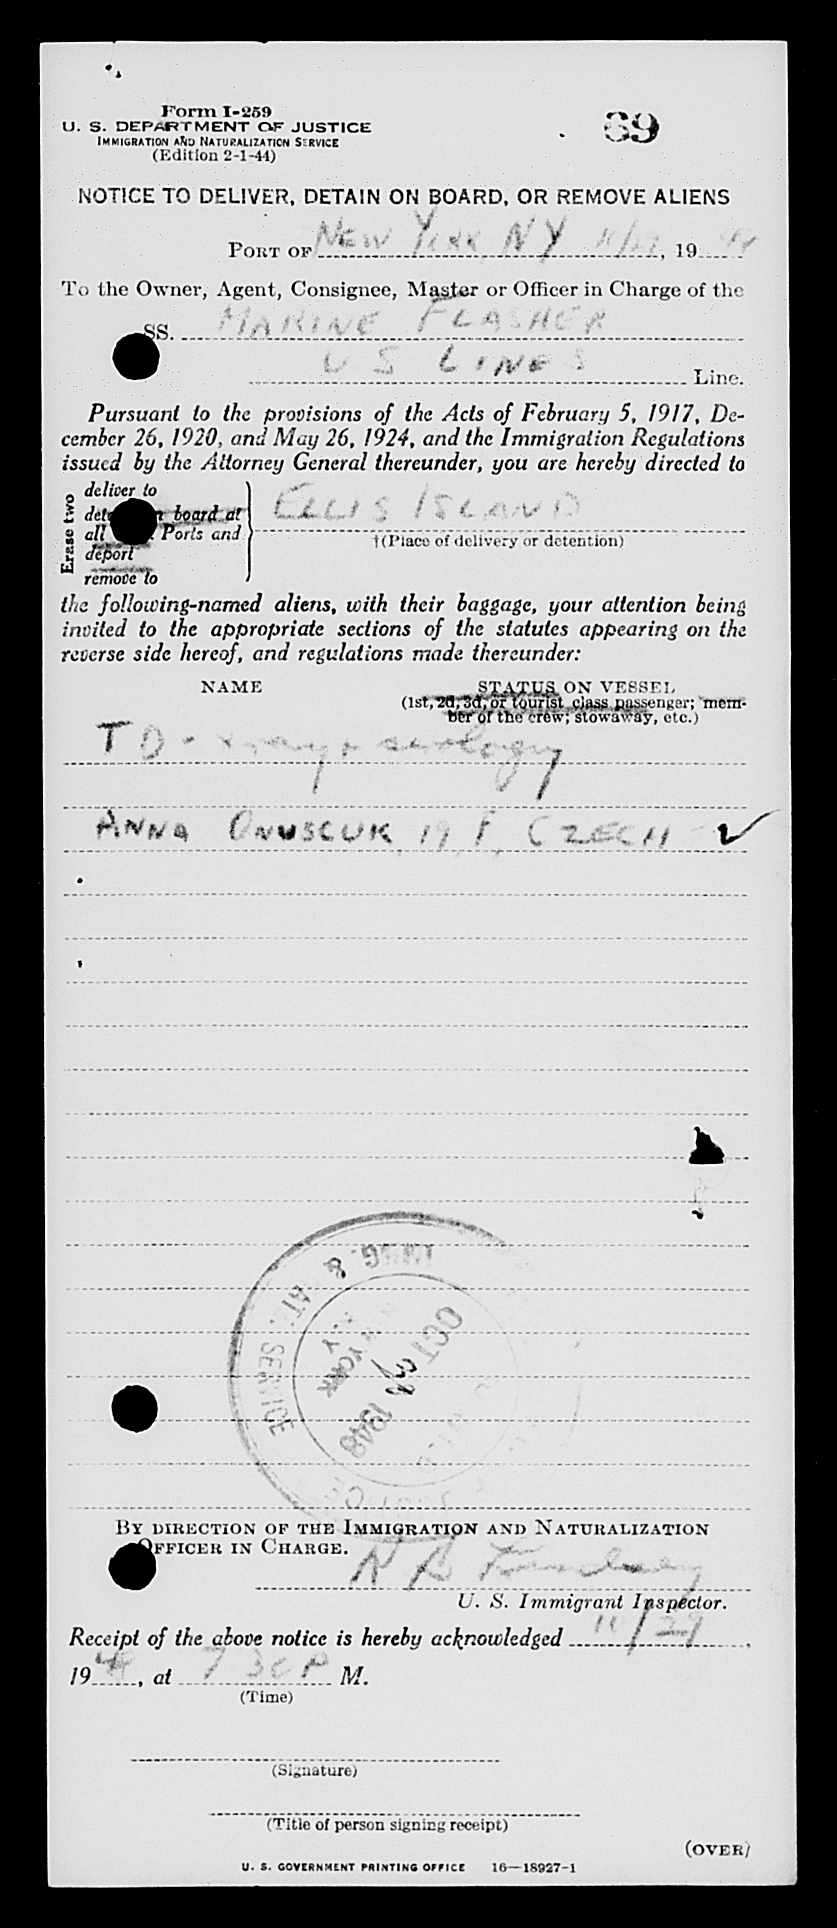 Form I-259
U. S. DEPARTMENT OF JUSTICE
IMMIGRATION AND NATURALIZATION SERVICE
(Edition 2-1-44)
69
NOTICE TO DELIVER, DETAIN ON BOARD, OR REMOVE ALIENS
PORT OF NEW YORK, NY 19
To the Owner, Agent, Consignee, Master or Officer in Charge of the
SS. MARINE FLASHER
US LINES Line.
Pursuant to the provisions of the Acts of February 5, 1917, De-
cember 26, 1920, and May 26, 1924, and the Immigration Regulations
issued by the Attorney General thereunder, you are hereby directed to
Erase two
deliver to
board at
all Ports and
deport
remove to
ELLIS ISLAND
†(Place of delivery or detention)
the following-named aliens, with their baggage, your attention being
invited to the appropriate sections of the statutes appearing on the
reverse side hereof, and regulations made thereunder:
NAME STATUS ON VESSEL
(1st, 2d, 3d, or tourist class passenger; mem-
ber of the crew; stowaway, etc.)
TD - xray + serology
ANNA ONUSCUK, 19, F, CZECH - ✓
IMMIG. & NAT. SERVICE
NEW YORK
N. Y.
OCT 1948
BY DIRECTION OF THE IMMIGRATION AND NATURALIZATION
OFFICER IN CHARGE.
U. S. Immigrant Inspector.
Receipt of the above notice is hereby acknowledged 10/29,
1948, at 7 30 P M.
(Time)
(Signature)
(Title of person signing receipt)
(OVER)
U. S. GOVERNMENT PRINTING OFFICE 16—18927-1